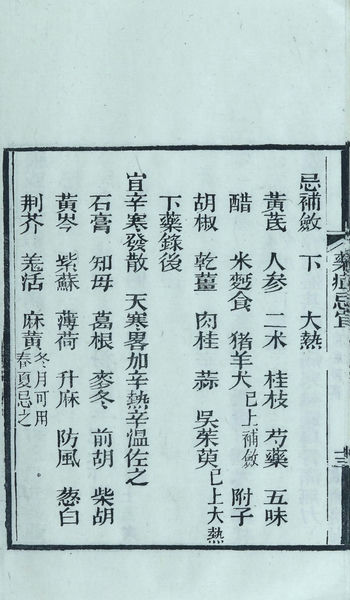 忌補斂　下　大熱
黃芪　人參　二朮　桂枝　芍藥　五味
醋　米麪食　豬羊犬已上補斂　附子
胡椒　乾薑　肉桂　蒜　吳茱萸已上大熱
下藥錄後
宜辛寒發散　天寒畧加辛熱辛溫佐之
石膏　知毋　葛根　麥冬　前胡　柴胡
黃岑　紫蘇　薄荷　升麻　防風　葱白
荆芥　羌活　麻黃冬月可用春夏忌之